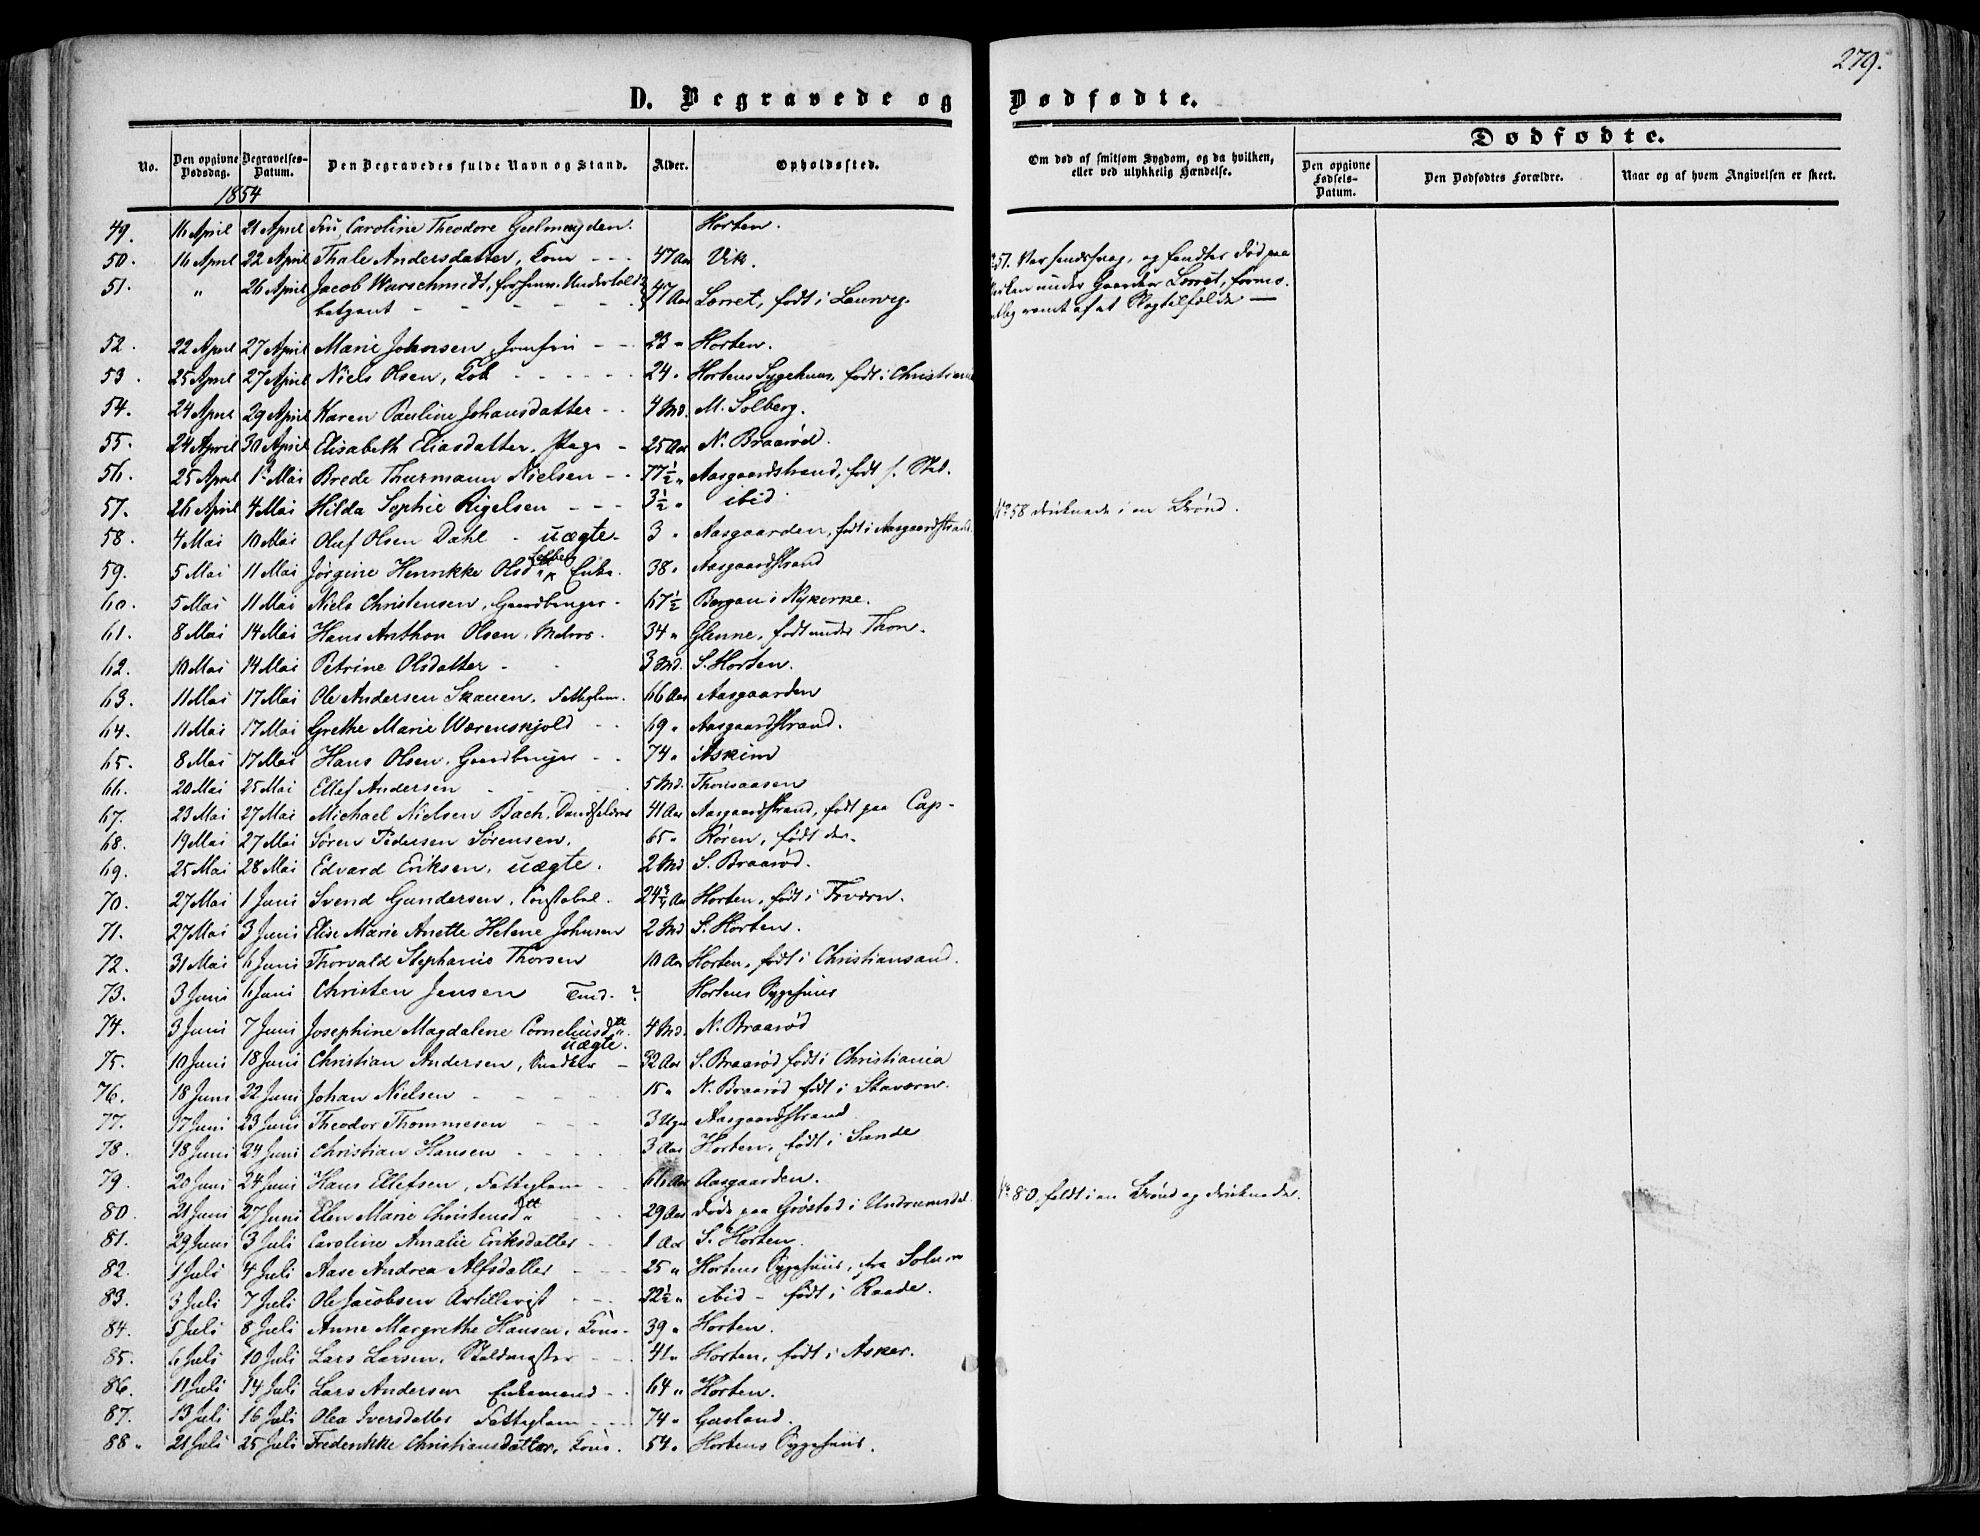 279.
D. Begravede og Dødfødte.
No. Den opgivne Dødsdag. Begravelses-Datum. Den Begravedes fulde Navn og Stand. Alder. Opholdssted.
Om død af smitsom Sygdom, og da hvilken, eller ved ulykkelig Hændelse.
Dødfødte.
Den opgivne Fødsels-Datum. Den Dødfødtes Forældre. Naar og af hvem Angivelsen er skeet.
1854
49. 11 April 21 April Fru Caroline Theodore Geelmuyden. Horten.
50. 16 April 22 April Thale Andersdatter, Kone - - - 47 Aar Vik.
51. " 26 April Jacob Warschmidt, forhenv. Undertold- 47 Aar Lørret, født i Laurvig
betjent - - - -
51. Var sindssvag, og fandtes død paa
under Gaarden Lørret, formo-
ramt af et Slagtilfælde —
52. 22 April 27 April Marie Johnsen, Jomfru - - 23 " Horten.
53. 25 April 27 April Niels Olsen, - - - - 24 " Hortens Sygehuus, født i Christiania
54. 24 April 29 April Karen Pauline Johansdatter - - 4 Md. M. Solberg.
55. 24 April 30 April Elisabeth Eliasdatter, Pige - 25 Aar N. Braarød.
56. 25 April 1 Mai Brede Thurmann Nielsen - - 77½ " Aasgaardstrand, født s. Sted.
57. 26 April 4 Mai Hilda Sophie Rigelsen - - - 3½ " ibid
58. 4 Mai 10 Mai Oluf Olsen Dahl - uægte - 3 " Aasgaarden, født i Aasgaardstrand.
No 58 druknede i en Brønd.
59. 5 Mai 11 Mai Jørgine Henrikke Olsdtr Enke. 38 " Aasgaardstrand
60. 5 Mai 11 Mai Niels Christensen, Gaardbruger - 67½ Bergan i Nykirke.
61. 8 Mai 14 Mai Hans Anthon Olsen, Matros. 34 " Glenne, født under Thon.
62. 10 Mai 14 Mai Petrine Olsdatter - - 3 Md. S. Horten.
63. 11 Mai 17 Mai Ole Andersen Skauen, Fattiglem. 66 Aar Aasgaarden
64. 11 Mai 17 Mai Grethe Marie Wærenskjold - - 69 " Aasgaardstrand.
65. 8 Mai 17 Mai Hans Olsen, Gaardbruger - - 74 " Askim
66. 20 Mai 25 Mai Ellef Andersen - - - - 5 Md. Thonsaasen
67. 23 Mai 27 Mai Michael Nielsen Bach, 41 Aar Aasgaardstrand, født paa Cap-
68. 19 Mai 27 Mai Søren Pedersen Sørensen. 65 " Røren, født der.
69. 25 Mai 28 Mai Edvard Eriksen, uægte. 2 Md S. Braarød.
70. 27 Mai 1 Juni Svend Gundersen, Constabel. 24¾ Aar Horten, født i
71. 27 Mai 3 Juni Elise Marie Anette Helene Johnsen 2 Md S. Horten.
72. 31 Mai 6 Juni Thorvald Stephanus Thorsen 10 Aar Horten, født i Christiansand.
73. 3 Juni 6 Juni Christen Jensen Tmd. ? Hortens Sygehuus
74. 3 Juni 7 Juni Josephine Magdalene Corneliusdtt. uægte. 4 Md. N. Braarød
75. 10 Juni 18 Juni Christian Andersen, Snedker - 32 Aar S. Braarød født i Christiania
76. 18 Juni 22 Juni Johan Nielsen - - - - 15 " N. Braarød født i Stavern.
77. 17 Juni 23 Juni Theodor Thommesen - - - 3 Uger Aasgaardstrand
78. 18 Juni 24 Juni Christian Hansen - - - - 3 Aar Horten, født i Sande
79. 20 Juni 24 Juni Hans Ellefsen, Fattiglem - - 66 Aar Aasgaarden.
80. 21 Juni 27 Juni Elen Marie Christensdtt - - - 29 Aar døde paa Grøstad i Undrumsdal
No 80, faldt i en Brønd og druknede.
81. 29 Juni 3 Juli Caroline Amalie Eriksdatter - - 1 Aar S. Horten.
82. 1 Juli 4 Juli Aase Andrea Alfsdatter - - - 25 " Hortens Sygehuus, fra Solum
83. 3 Juli 7 Juli Ole Jacobsen Artillerist - - - 22½ " ibid - født i Raade.
84. 5 Juli 8 Juli Anne Margrethe Hansen, Kone - 39 " Horten.
85. 6 Juli 10 Juli Lars Larsen, Staldmester - - - 41 " Horten, født i Asker.
86. 11 Juli 14 Juli Lars Andersen Enkemand - - 64 " Horten.
87. 13 Juli 16 Juli Olea Iversdatter Fattiglem - - - 74 " Gasland.
88. 21 Juli 25 Juli Frederikke Christiansdatter, Kone. 54 " Hortens Sygehuus.